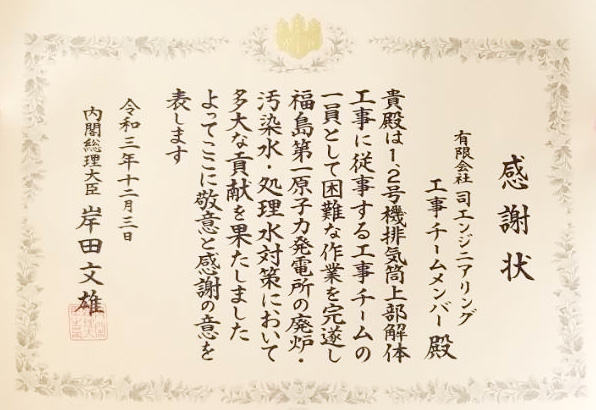 感謝状
有限会社 司エンジニアリング
工事チームメンバー 殿
貴殿は1、2号機排気筒上部解体
工事に従事する工事チームの
一員として困難な作業を完遂し
福島第一原子力発電所の廃炉・
汚染水・処理水対策において
多大な貢献を果たしました
よってここに敬意と感謝の意を
表します
令和三年十二月三日
内閣総理大臣 岸田文雄